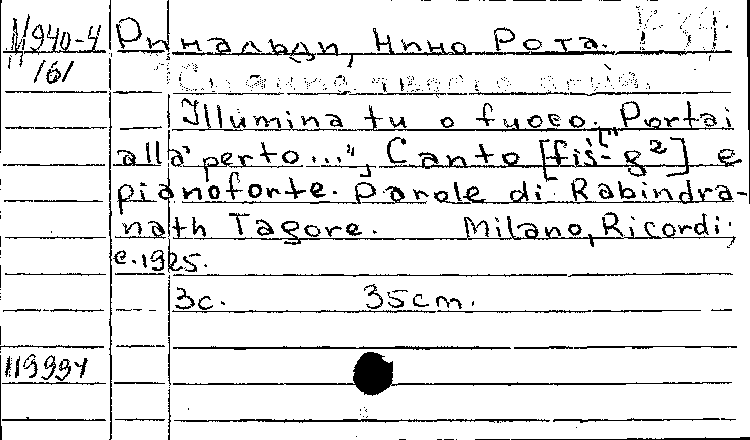 М940-4 Ринальди, Нино Рота. Р-39
161
Illumina tu o fuoco. Portai
alla' perto...", Canto [fis¹-g²] e
pianoforte. Parole di Rabindra-
nath Tagore. Milano, Ricordi,
c.1925.
3c. 35cm.